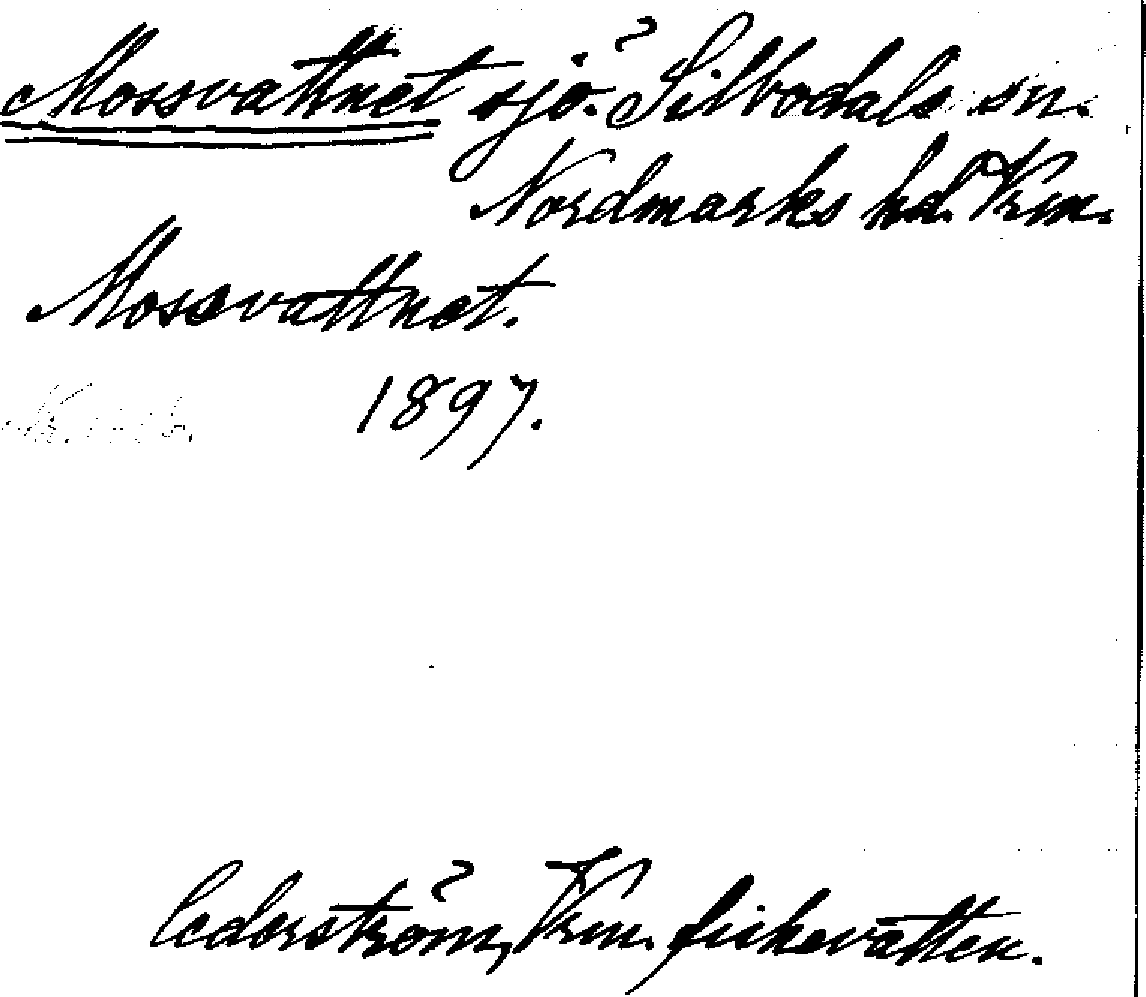 Mossvattnet sjö. Silbodals sn.
Nordmarks hd. Vrm.
Mossvattnet.
1897.
Cederström, Vrm. fiskevatten.